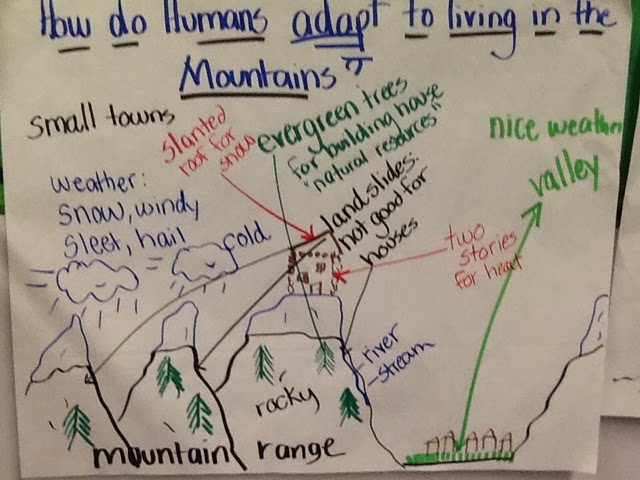 How do Humans adapt to living in the
Mountains?
small towns
slanted
roof for
snow
evergreen trees
for building house
"natural resources"
nice weather
valley
weather:
snow, windy,
sleet, hail
cold
landslides:
not good for
houses
two
stories
for heat
river
-stream
rocky
mountain range